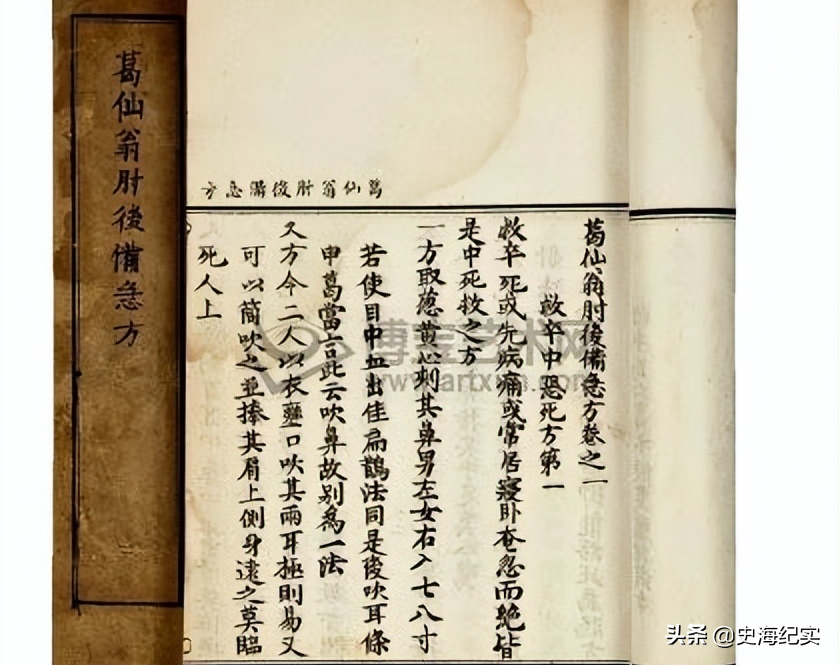 葛仙翁肘後備急方
葛仙翁肘後備急方
葛仙翁肘後備急方卷之一
救卒中惡死方第一
救卒死或先病痛或常居寢卧奄忽而絶皆
是中死救之方
一方取葱黄心刺其鼻男左女右入七八寸
若使目中血出佳扁鵲法同是後吹耳條
中葛當言此云吹鼻故别為一法
又方令二人以衣壅口吹其兩耳極則易又
可以筒吹之並捧其肩上側身遠之莫臨
死人上
博宝艺术网
www.artxun.com
头条 @史海纪实